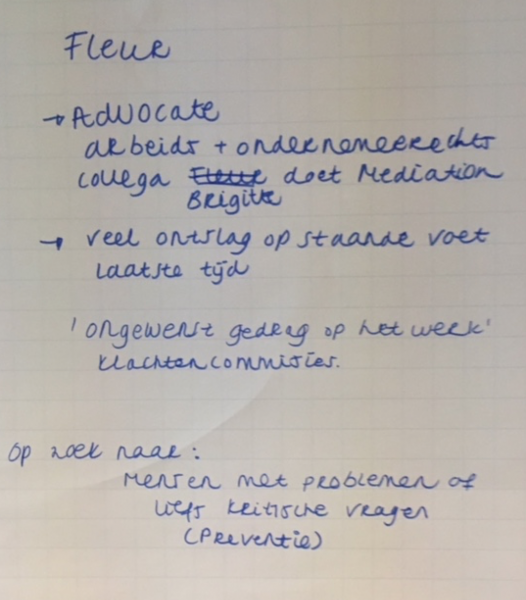 Fleur
→ Advocate
arbeids + ondernemersrechts
collega Fleur doet Mediation
Brigitte
→ veel ontslag op staande voet
laatste tijd
'ongewenst gedrag op het werk'
klachtencommissies.
op zoek naar:
Mensen met problemen of
liefs kritische vragen
(Preventie)